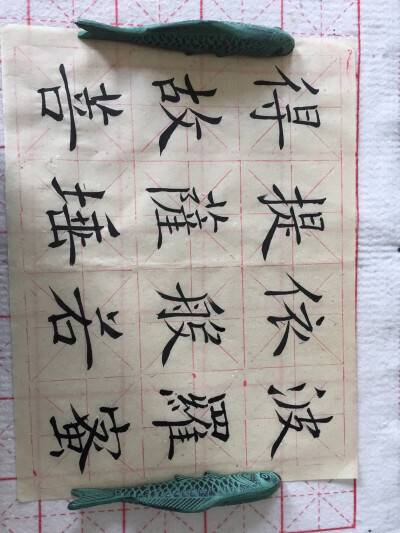 得故菩
提薩埵
依般若
波羅蜜